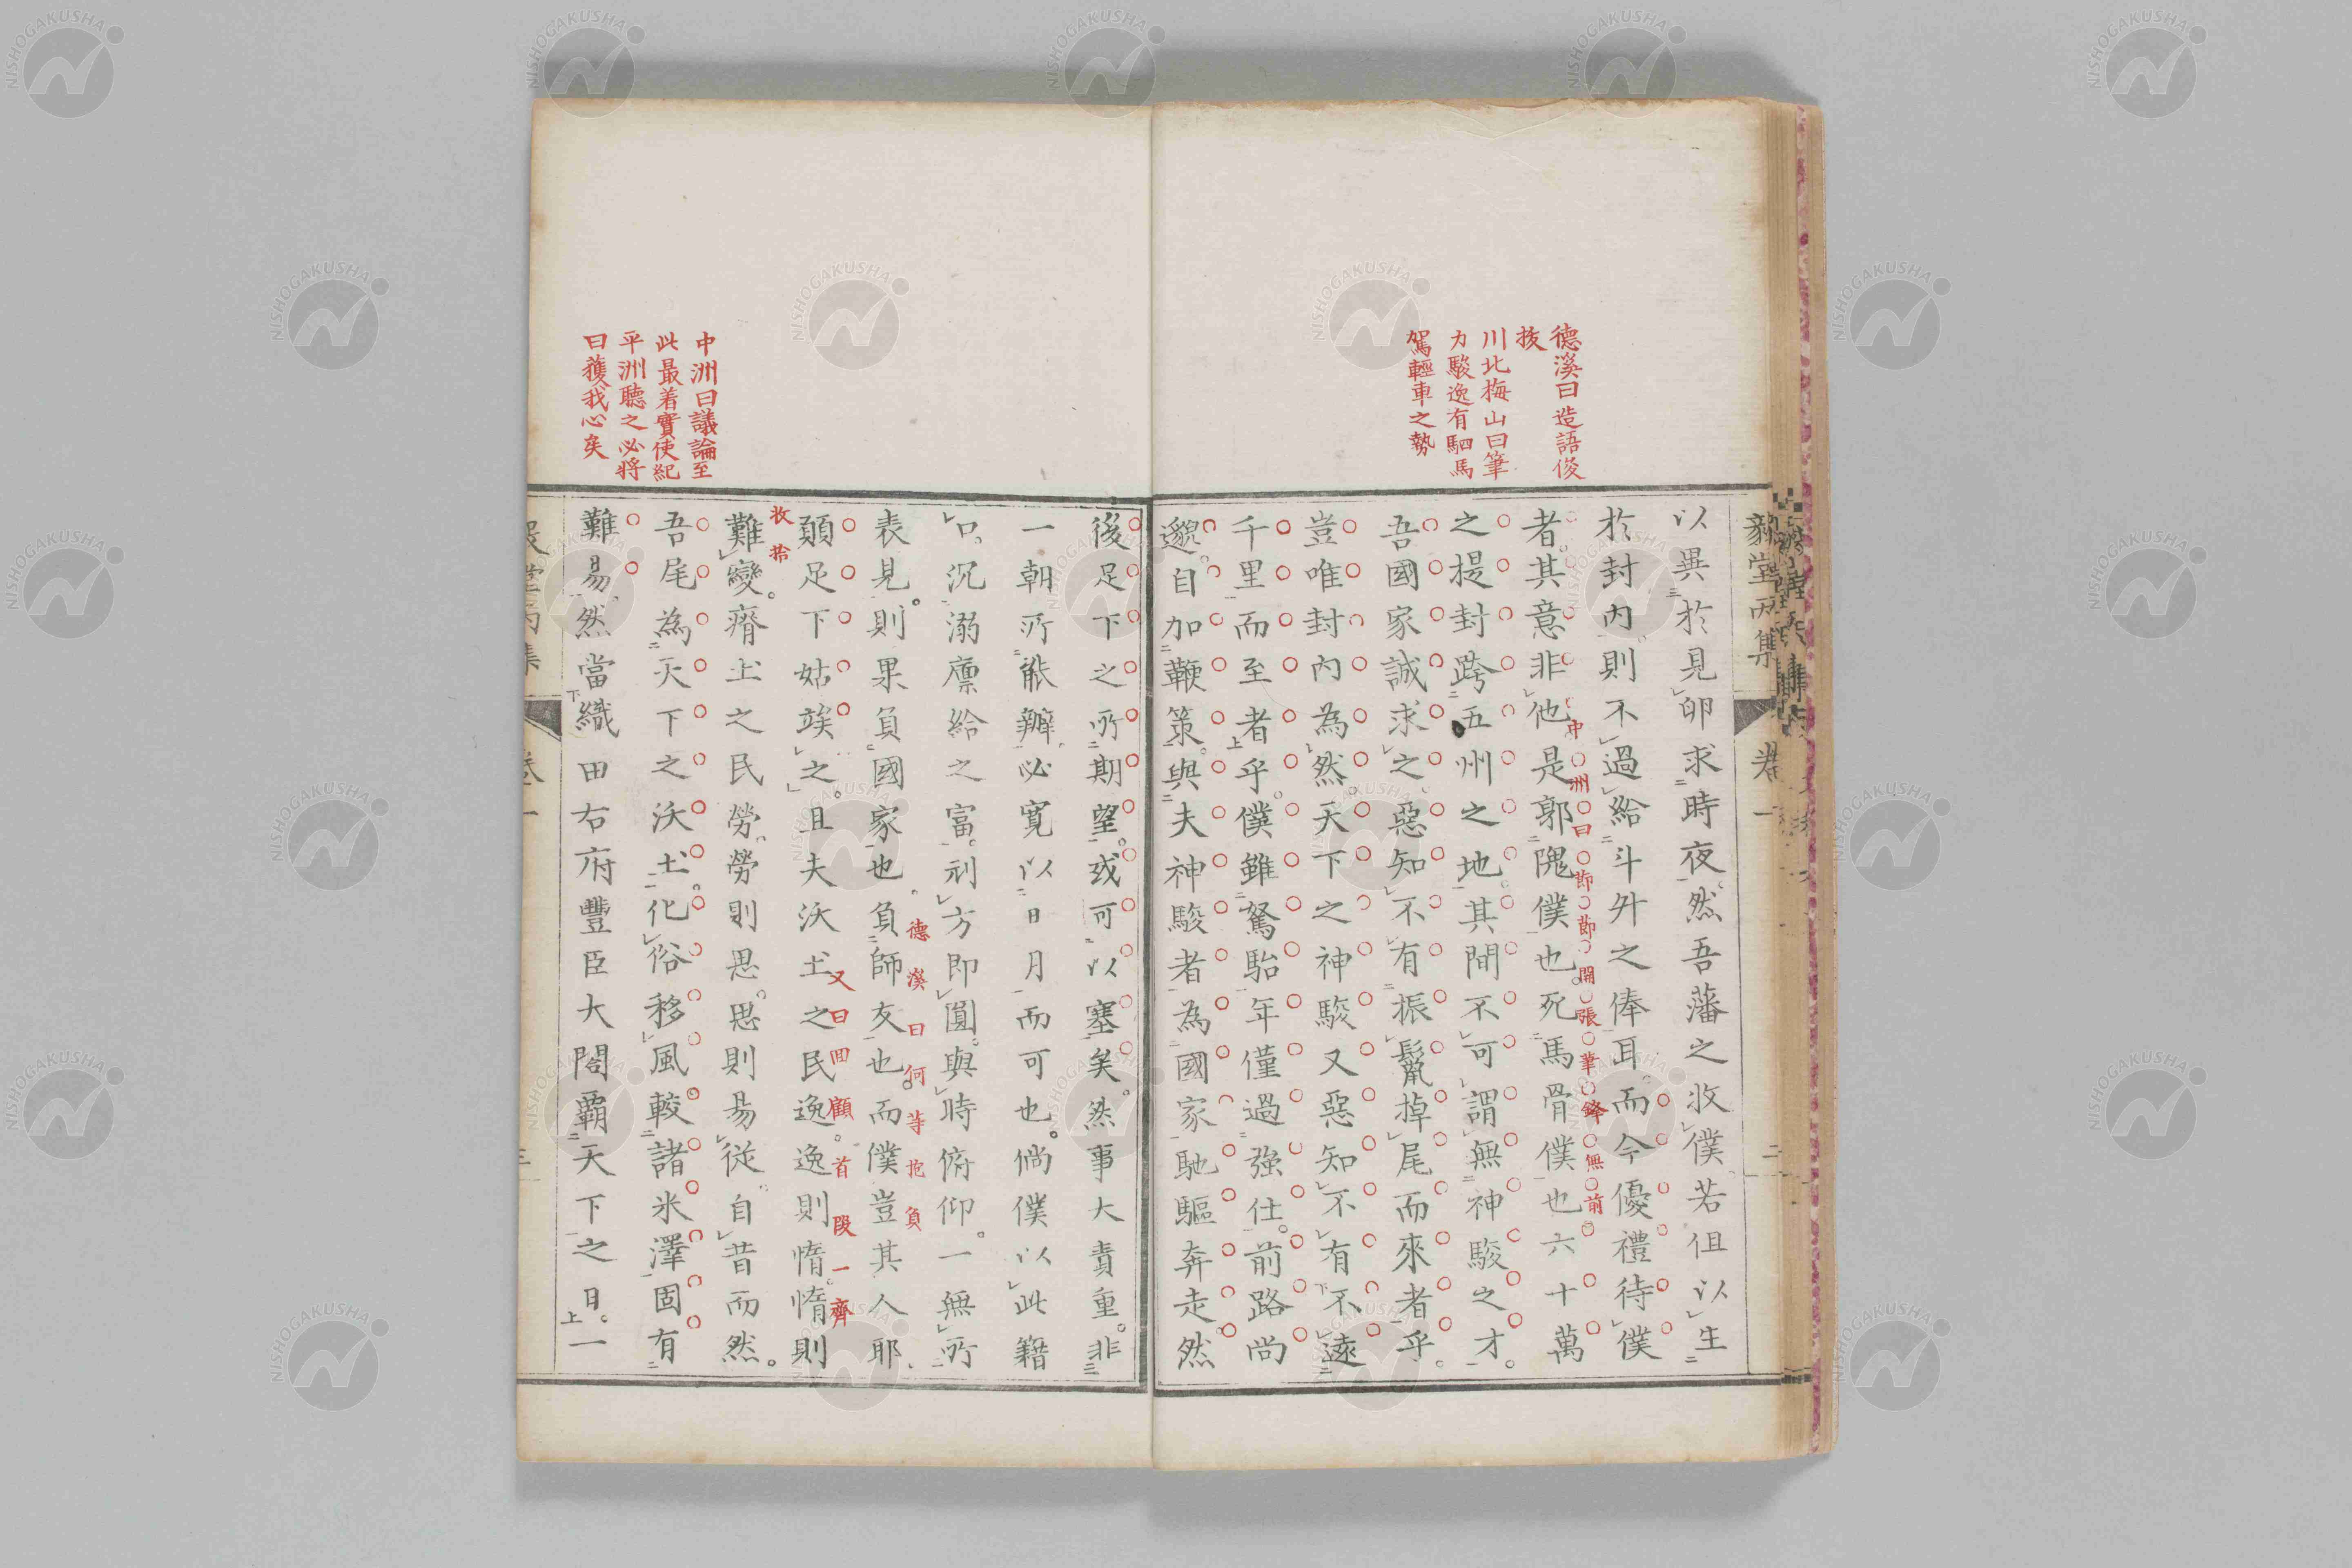 德溪曰造語俊
拔
川北梅山曰筆
力駿逸有駟馬
駕輕車之勢
毅堂丙集
卷一
二
以異於見卵求時夜然吾藩之收僕若伹以生
於封內則不過給斗舛之俸耳而今優禮待僕
者其意非他是郭隗僕也死馬骨僕也六十萬
中洲曰節節開張筆鋒無前
之提封跨五州之地其間不可謂無神駿之才
吾國家誠求之惡知不有振鬣掉尾而來者乎
豈唯封內為然天下之神駿又惡知不有不遠
千里而至者乎僕雖駑駘年僅過強仕前路尚
邈自加鞭策與夫神駿者為國家馳驅奔走然
中洲曰議論至
此最着實使紀
平洲聽之必將
曰獲我心矣
後足下之所期望或可以塞矣然事大責重非
一朝所能辦必寬以日月而可也倘僕以此籍
口沉溺廪給之富刓方即圓與時俯仰一無所
表見則果負國家也負師友也而僕豈其人耶
德溪曰何等抱負
又曰回顧首段一齊
收拾
願足下姑竢之且夫沃土之民逸逸則惰惰則
難變瘠土之民勞勞則思思則易從自昔而然
吾尾為天下之沃土化俗移風較諸米澤固有
難易然當織田右府豐臣大閤覇天下之日一
NISHOGAKUSHA